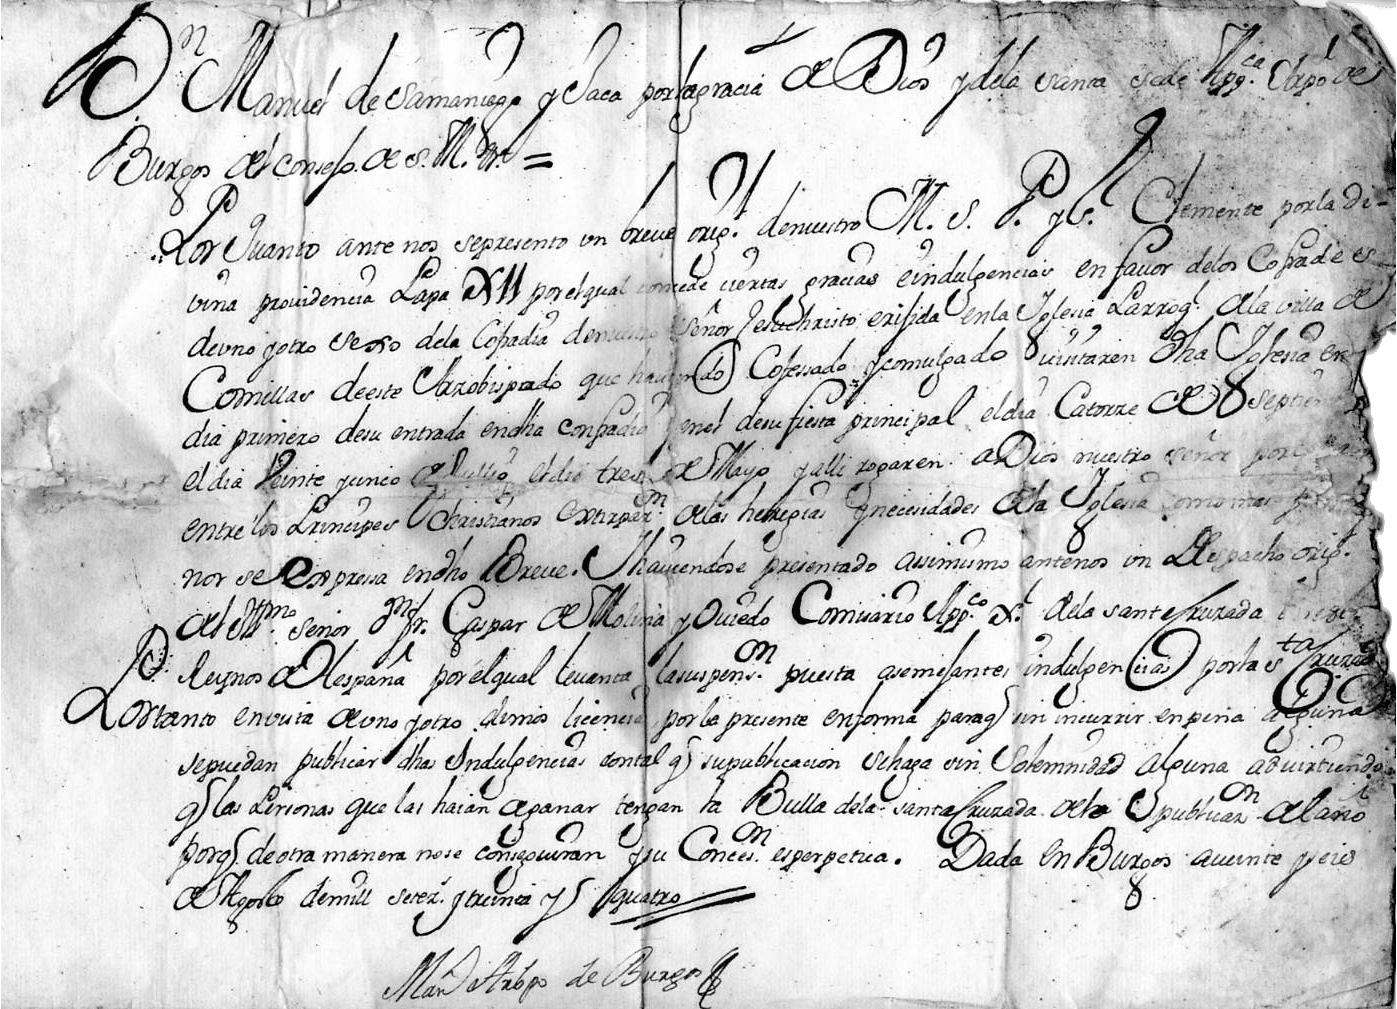 Dn Manuel de Samaniego y Jaca por la gracia de Dios y de la santa sede Appca Arpo de
Burgos del consejo de S. M. &a =
Por Quanto ante nos se presento un breve orig.l de nuestro M. S. P. y S. Clemente por la di-
vina providencia Papa XII por el qual concede ciertas gracias e indulgencias en favor de los Cofrades
de uno y otro sexo de la Cofradia de nuestro Señor Jesuchristo erijida en la Iglesia Parrogl de la villa de
Comillas de este Arzobispado que haviendo Cofessado y comulgado visitaren dha Iglesia en
dia primero de su entrada en dha confradia y en el de su fiesta principal el dia Catorze de Septiem
el dia Veinte y cinco de Jullio el dia tres de Mayo y alli rogaren a Dios nuestro señor por
entre los Principes Christianos extirpaz.n de las heregias y necesidades de la Iglesia como mas
nor se expressa en dho Breve. I haviendose presentado assimismo ante nos un Despacho orig.l
del Illmo señor Dn fr. Gaspar de Molina y Oviedo Comisario App.co Gl de la santa Cruzada
Reynos de España por el qual levanta la suspens.n puesta a semejantes indulgencias por la sta Cruzada
P.
Por tanto en vista de uno y otro dimos licencia por la presente en forma para q sin incurrir en pena alguna
se puedan publicar dhas Indulgencias con tal q su publicacion se haga sin Solemnidad alguna advirtiendo
q las Personas que las haian de ganar tengan la Bulla de la santa Cruzada de la publicaz.n del año
porq de otra manera no se conseguiran y su Conces.n es perpetua. Dada en Burgos a veinte y seis
de Agosto de mill setez.s y treinta y quatro
Man Arbpo de Burgos